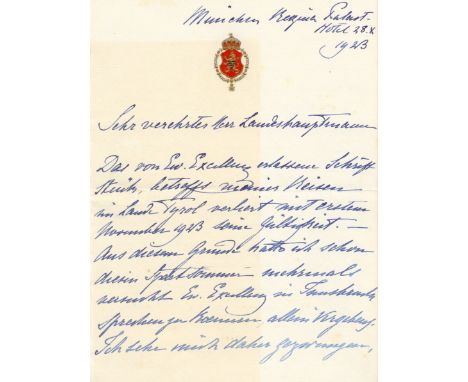 München Regina Palast-
Hotel 28.X
1923
Sehr verehrter Herr Landeshauptmann
Das von Ew. Excellenz erlassene Schrift
Stück, betreffs meiner Reisen
im Lande Tyrol verliert mit erstem
November 1923 seine Gültigkeit. —
Aus diesem Grunde hatte ich schon
diesen Spätsommer — mehrmals
versucht Ew. Excellenz in Innsbruck
sprechen zu können allein vergebens.
Ich sehe mich daher gezwungen,